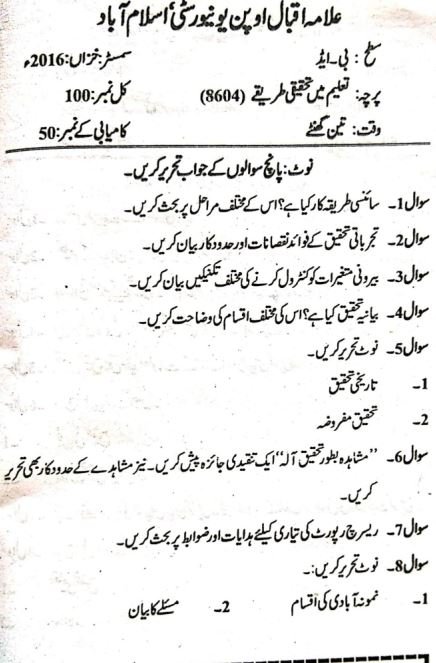 علامہ اقبال اوپن یونیورسٹی، اسلام آباد
سطح : بی۔ایڈ سمسٹر: خزاں: 2016ء
پرچہ: تعلیم میں تحقیقی طریقے (8604) کل نمبر: 100
وقت: تین گھنٹے کامیابی کے نمبر: 50
نوٹ: پانچ سوالوں کے جواب تحریر کریں۔
سوال 1۔ سائنسی طریقہ کار کیا ہے؟ اس کے مختلف مراحل پر بحث کریں۔
سوال 2۔ تجرباتی تحقیق کے فوائد نقصانات اور حدود کار بیان کریں۔
سوال 3۔ بیرونی متغیرات کو کنٹرول کرنے کی مختلف تکنیکیں بیان کریں۔
سوال 4۔ بیانیہ تحقیق کیا ہے؟ اس کی مختلف اقسام کی وضاحت کریں۔
سوال 5۔ نوٹ تحریر کریں۔
1۔ تاریخی تحقیق
2۔ تحقیق مفروضہ
سوال 6۔ ’’مشاہدہ بطور تحقیق آلہ‘‘ ایک تنقیدی جائزہ پیش کریں۔ نیز مشاہدے کے حدود کار بھی تحریر
کریں۔
سوال 7۔ ریسرچ رپورٹ کی تیاری کیلئے ہدایات اور ضوابط پر بحث کریں۔
سوال 8۔ نوٹ تحریر کریں:۔
1۔ نمونہ آبادی کی اقسام 2۔ مسئلے کا بیان